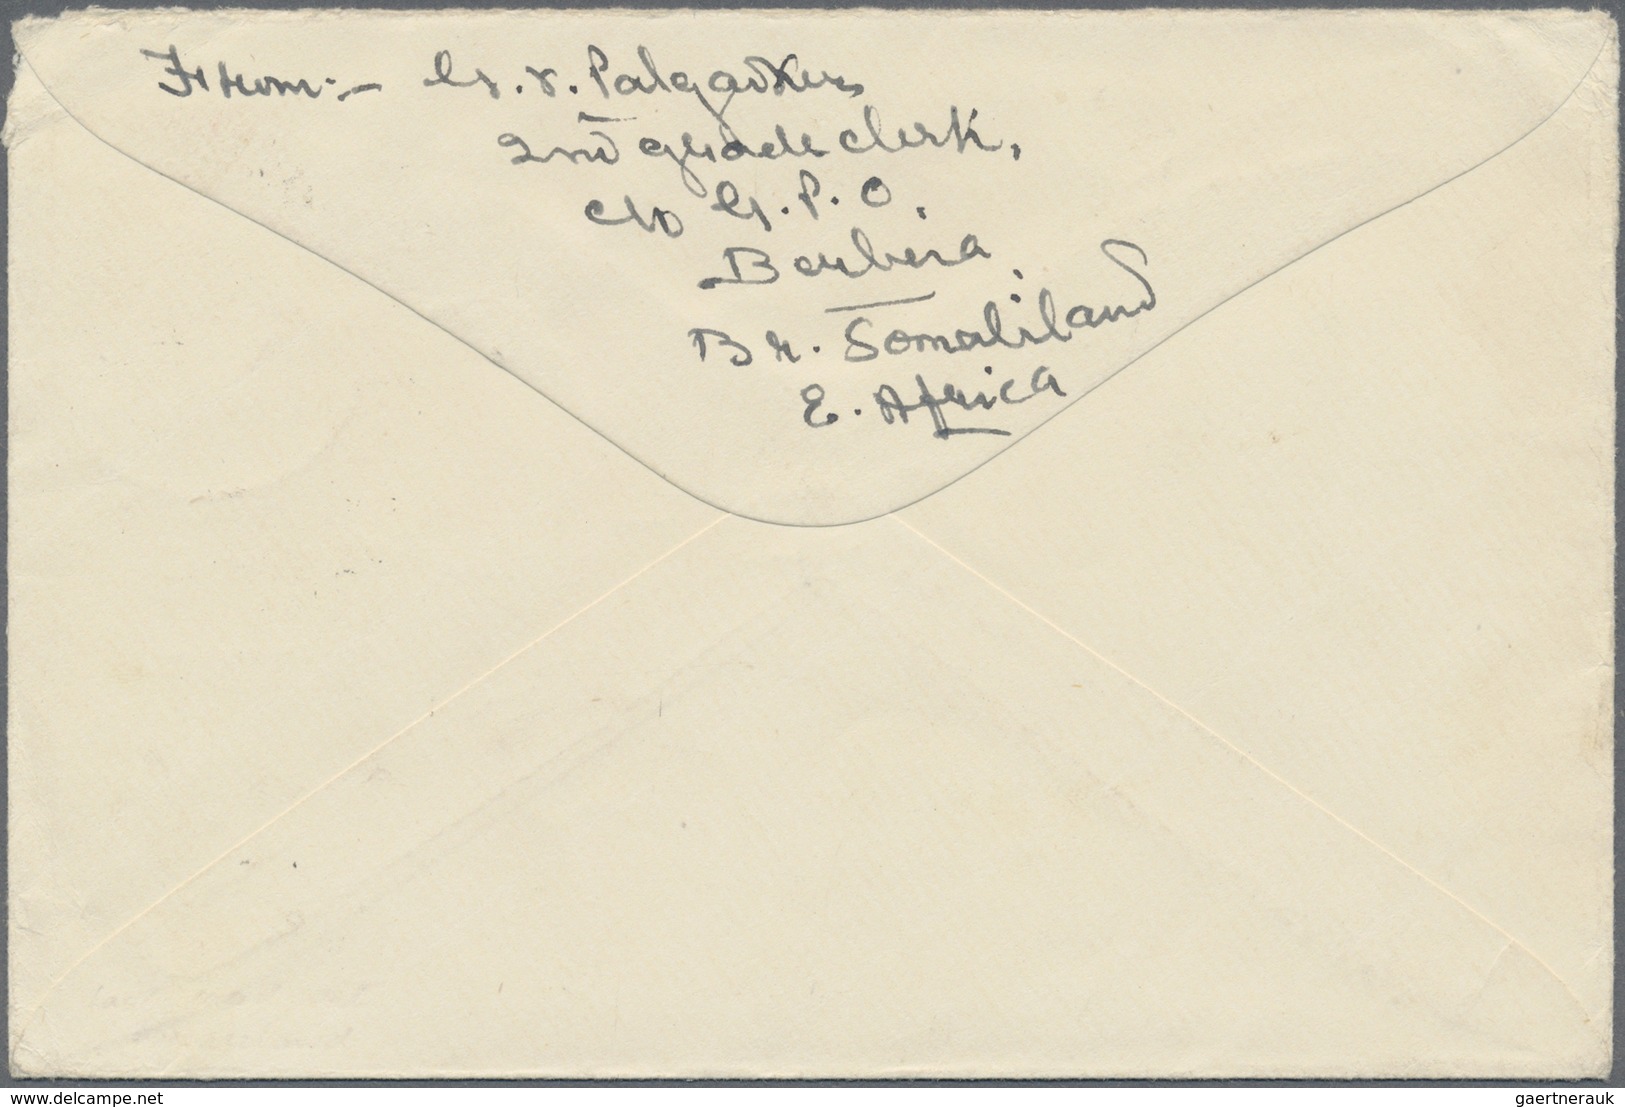 From:- G. V. Palgavker
2nd grade clerk,
c/o G. P. O.
Berbera.
Br. Somaliland
E. Africa
www.delcampe.net
gaertnerauk